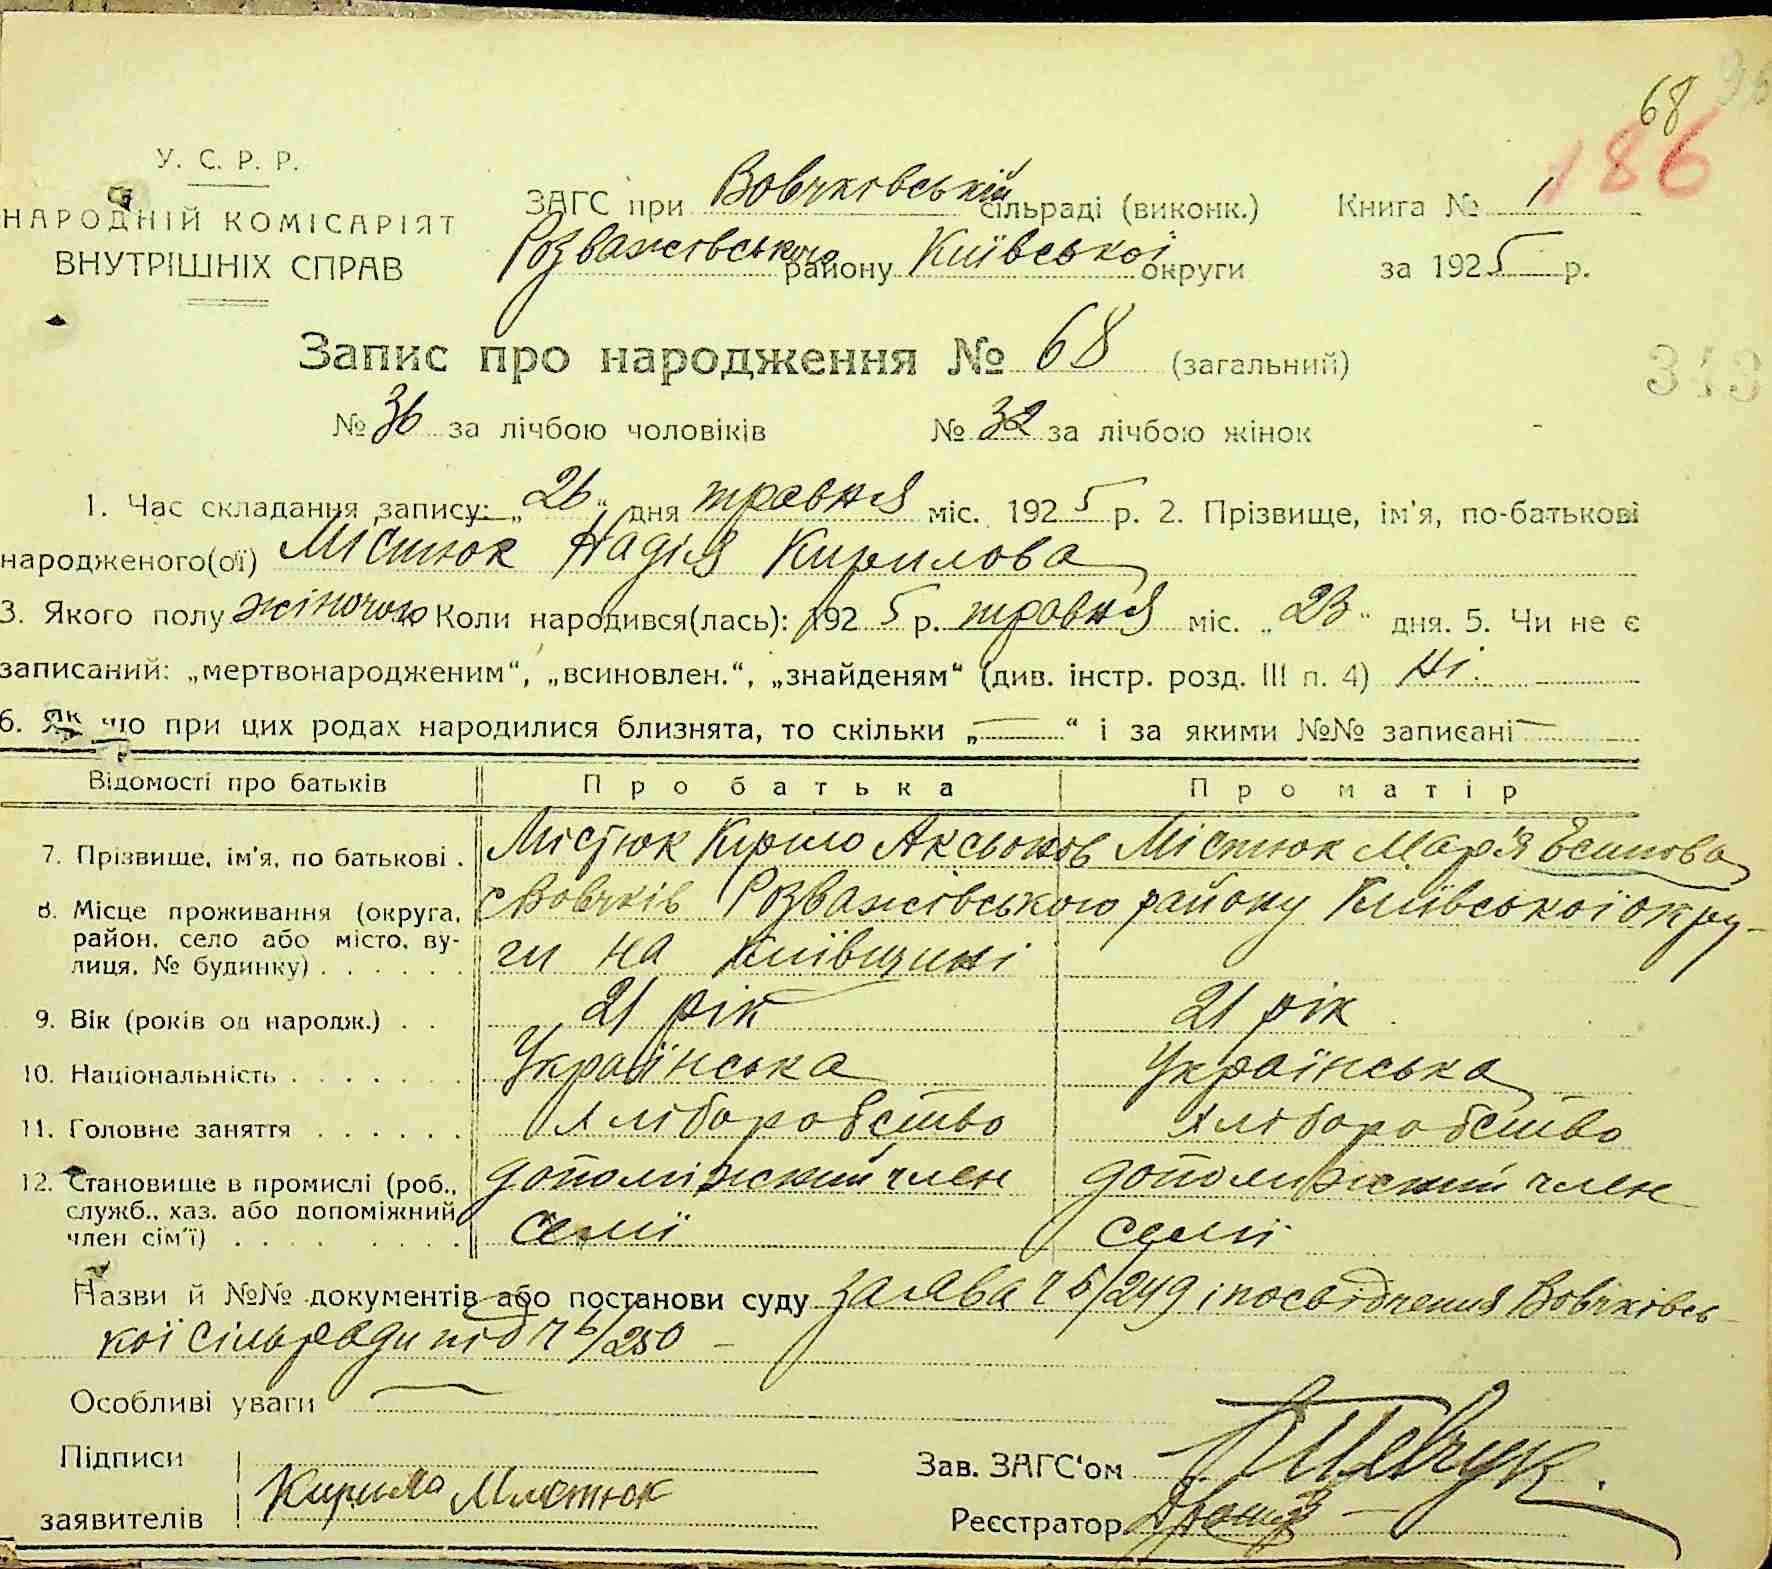 68
186
У. С. Р. Р.
НАРОДНІЙ КОМІСАРІЯТ
ВНУТРІШНІХ СПРАВ
ЗАГС при Вовчківській сільраді (виконк.) Книга № 1
Розважівського району Київської округи за 1925 р.
Запис про народження № 68 (загальний)
313
№ 36 за лічбою чоловіків № 32 за лічбою жінок
1. Час складання запису: „26“ дня травня міс. 1925 р. 2. Прізвище, ім'я, по-батькові
народженого(ої) Містюк Надія Кирилова
3. Якого полу жіночого Коли народився(лась): 1925 р. травня міс. „23“ дня. 5. Чи не є
записаний: „мертвонародженим“, „всиновлен.“, „знайденям“ (див. інстр. розд. III п. 4) Ні.
6. Як що при цих родах народилися близнята, то скільки „—“ і за якими №№ записані —
Відомості про батьків Про батька Про матір
7. Прізвище, ім'я, по батькові . Містюк Кірило Аксьонов Містюк Мар'я Есипова
8. Місце проживання (округа, с Вовчків Розважівського району Київської окру-
район, село або місто, ву-
лиця, № будинку) . . . . . . ги на Київщині
9. Вік (років од народж.) . . 21 рік 21 рік
10. Національність . . . . . . . Українська Українська
11. Головне заняття . . . . . . Хліборобство Хліборобство
12. Становище в промислі (роб., допоміжний член допоміжний член
служб., хаз. або допоміжний
член сім'ї) . . . . . . . . семії семії
Назви й №№ документів або постанови суду заява ч 5/249 і посвідчення Вовчківсь-
кої сільради під ч 5/250 —
Особливі уваги —
Підписи
заявителів Кирило Містюк
Зав. ЗАГС'ом Шевчук
Реєстратор